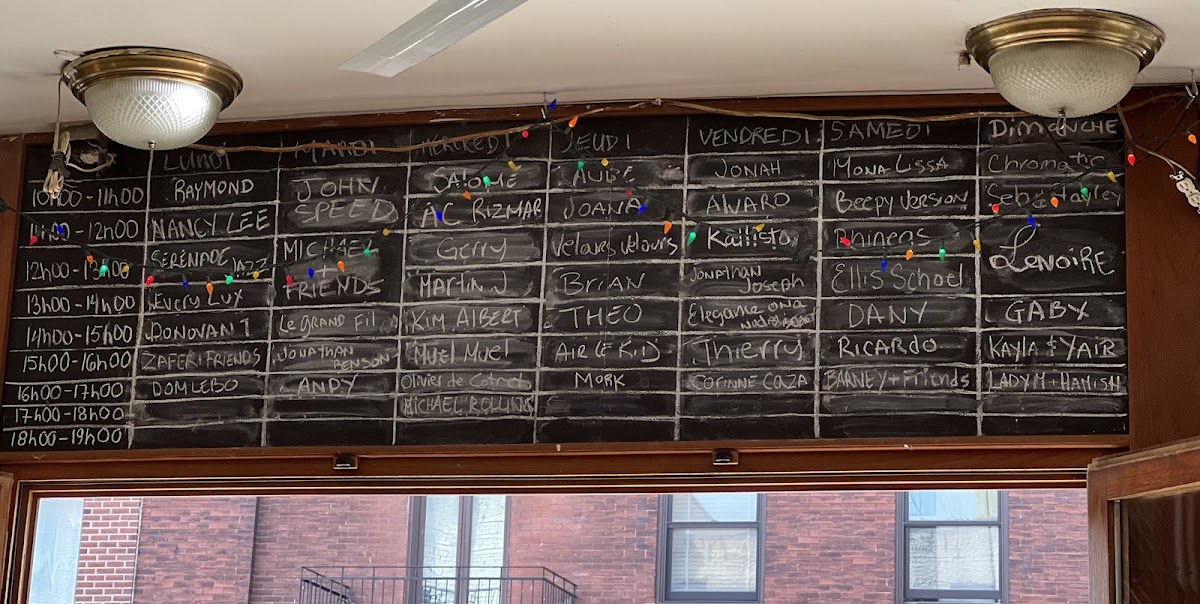 LUNDI MARDI MERCREDI JEUDI VENDREDI SAMEDI DIMANCHE
10h00-11h00 RAYMOND JOHN SPEED SALOMÉ AUDE JONAH MONA LISSA Chromatic
11h00-12h00 NANCY LEE AC RIZMAR JOANA ALVARO BEEPY VERSION Seb Hayley
12h00-13h00 SÉRÉNADE JAZZ MICHAEL + FRIENDS Gerry Velours velours Kallisto Rhinens LENOIRE
13h00-14h00 Every Lux Martin J BRIAN JONATHAN Joseph Ellis School
14h00-15h00 DONOVAN T Le GRAND Fil KIM ALBERT THEO Elegance DANY GABY
15h00-16h00 ZAFER+FRIENDS JONATHAN BENSON Muel Muel AIR Thierry RICARDO KAYLA & YAIR
16h00-17h00 DOMLEBO ANDY Olivier de MORK CORINNE CAZA BARNEY+Friends LADY M+HAMISH
17h00-18h00 MICHAEL ROLLING
18h00-19h00